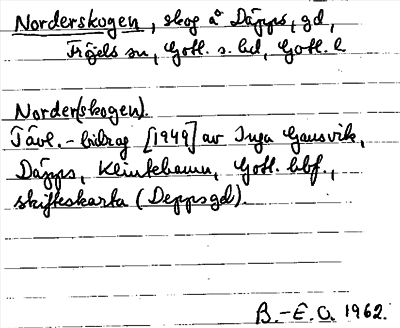 Norderskogen, skog å Däpps, gd,
Fröjels sn, Gotl. s. hd, Gotl. l
Norder(skogen).
Tävl.-bidrag [1949] av Inga Gansvik,
Däpps, Klintehamn, Gotl. hbf.,
skifteskarta (Deppsgd).
B.-E. O. 1962.